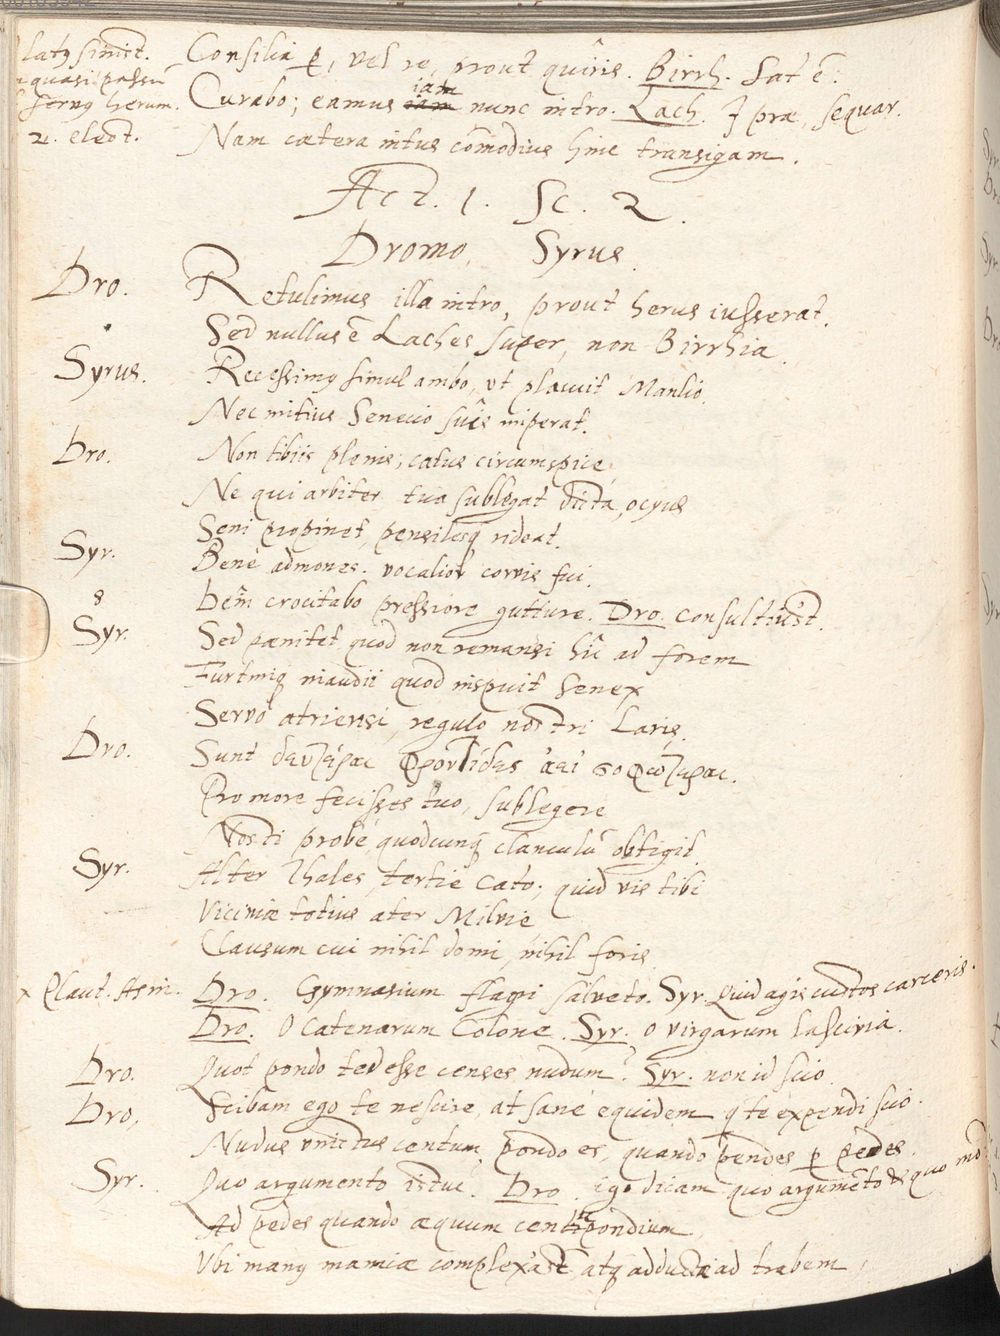 latq sinist.
quasi passu
servus herum.
2. elect.
Consilia p, vel re, prout quîris. Birrh. Sat ē.
iam
Curabo; eamus iam nunc intro. Lach. I prae, sequar.
Nam caetera intus cōmodius hinc transigam.
Act. 1. Sc. 2.
Dromo. Syrus.
Dro. Retulimus illa intro, prout herus iusserat.
Sed nullus ē Laches super, non Birrhia.
Syrus. Recessimq simul ambo, ut plavvit Manlio.
Nec mitius Senecio suis imperat.
Dro. Non tibiis plenis; catus circumspice,
Ne qui arbiter tua sublegat dicta, ocyus
Seni propinet, pensilesq rideat.
Syr. Bene admones. vocalior corvis fui.
8 crocitabo pressiore gutture. Dro. Consultiust.
Syr. Sed paenitet quod non remansi hîc ad forem
quod inspuit Senex
Servo atriensi, regulo nostri Laris.
Dro. Sunt
Pro more fecisses tuo, sublegere
Nosti probe quodcunq clanculū obtigit.
Syr. Alter Thales, tertie Cato; quid vis tibi
Viciniae totius ater Milvie,
Clausum cui nihil domi, nihil foris
x Plaut. Asin. Dro. Gymnasium flagri salveto. Syr. Quid agis custos carceris.
Dro. O Catenarum Colone. Syr. o virgarum lascivia.
Dro. Quot pondo ted esse censes nudum? Syr. non id scio.
Dro. Scibam ego te nescire, at sane equidem q te expendi scio.
Nudus vinctus centum pondo es, quando pendes p pedes.
Syr. Quo argumento istuc. Dro. Ego dicam quo argumēto & quo mod
Ad pedes quando aequum centupondium,
Ubi manq manicae complexast, atq adducta ad trabem,